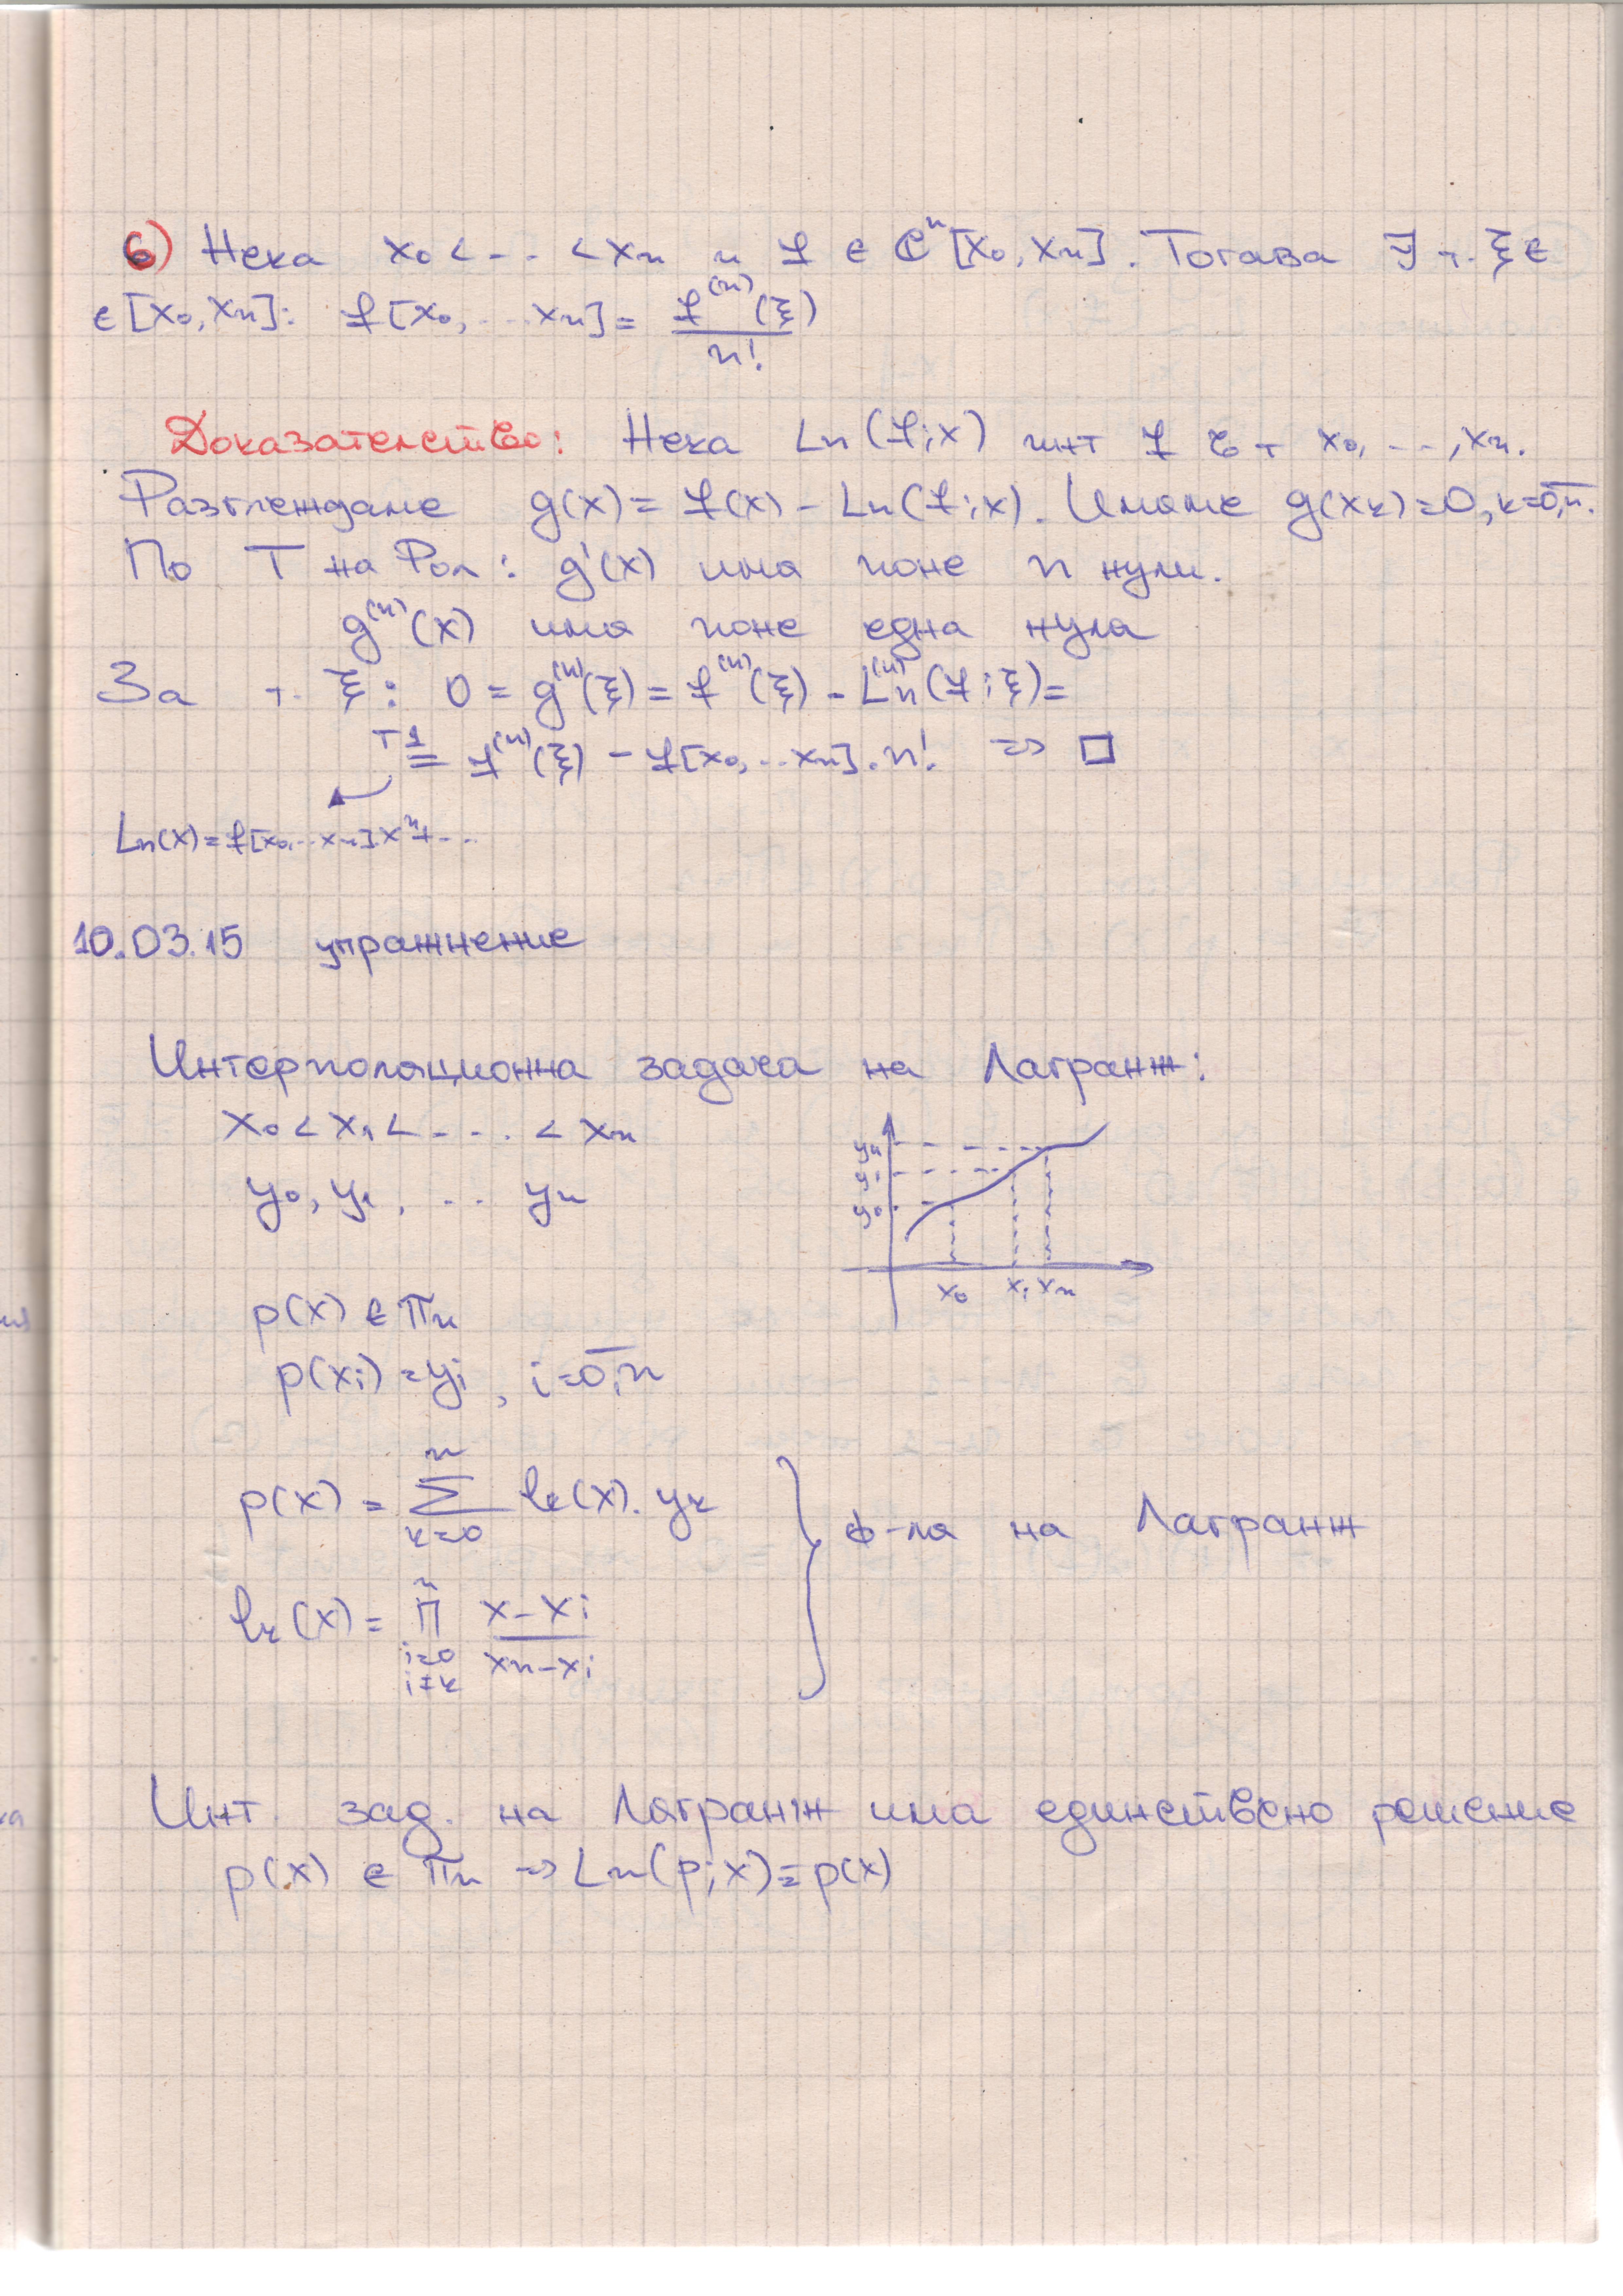 6) Нека x₀ < ... < xₙ и f ∈ Cⁿ[x₀, xₙ]. Тогава ∃ т. ξ ∈
∈ [x₀, xₙ]: f[x₀, ... xₙ] = f⁽ⁿ⁾(ξ) / n!
Доказателство: Нека Ln(f; x) инт f в т x₀, ..., xₙ.
Разглеждаме g(x) = f(x) - Ln(f; x). Имаме g(xₖ) = 0, k = 0,n.
По Т на Рол: g'(x) има поне n нули.
g⁽ⁿ⁾(x) има поне една нула
За т. ξ: 0 = g⁽ⁿ⁾(ξ) = f⁽ⁿ⁾(ξ) - Ln⁽ⁿ⁾(f; ξ) =
T1 = f⁽ⁿ⁾(ξ) - f[x₀, ... xₙ]. n! => □
Ln(x) = f[x₀, ... xₙ].xⁿ + ...
10.03.15 упражнение
Интерполационна задача на Лагранж:
x₀ < x₁ < ... < xₙ
y₀, y₁, ... yₙ
yₙ
yᵢ
y₀
x₀ xᵢ xₙ
p(x) ∈ πₙ
p(xᵢ) = yᵢ, i = 0,n
p(x) = ∑ₖ₌₀ⁿ lₖ(x). yₖ
ф-ла на Лагранж
lₖ(x) = ∏ⁿ i=0 i≠k (x - xᵢ) / (xₙ - xᵢ)
Инт. зад. на Лагранж има единствено решение
p(x) ∈ πₙ => Ln(p; x) = p(x)